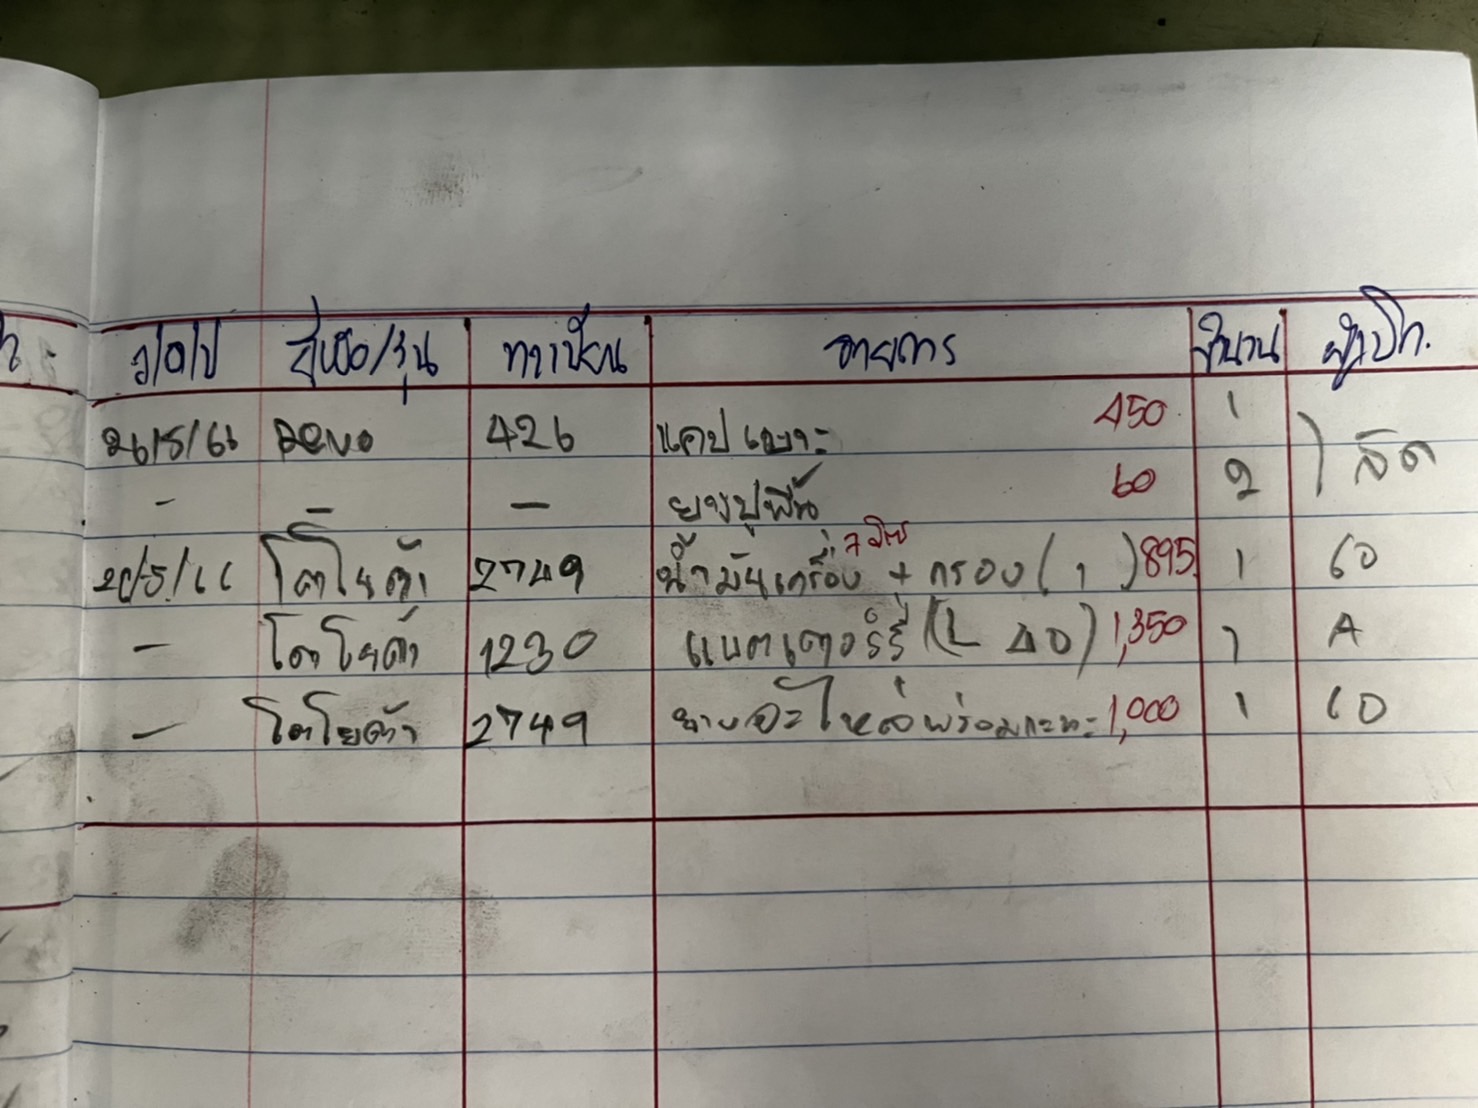 ว/ด/ป ยี่ห้อ/รุ่น ทะเบียน รายการ จำนวน ผู้เบิก.
26/5/66 Revo 426 แคปเบาะ 450 1
- - - ยางปูพื้น 60 2
26/5/66 โตโยต้า 2749 น้ำมันเครื่อง 7 ลิตร + กรอง (1) 895 1 60
- โตโยต้า 1230 แบตเตอร์รี่ (L 40) 1,350 1 A
- โตโยต้า 2749 ยางอะไหล่พร้อมกะทะ 1,000 1 60